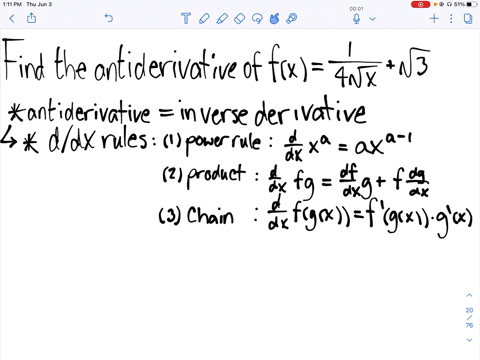 1:11 PM Thu Jun 3
00:01
51%
Find the antiderivative of f(x) = 1/(4√x) + √3
*antiderivative = inverse derivative
↳ * d/dx rules: (1) power rule : d/dx x^a = ax^(a-1)
(2) product : d/dx fg = df/dx g + f dg/dx
(3) Chain : d/dx f(g(x)) = f'(g(x)) · g'(x)
20
/
76